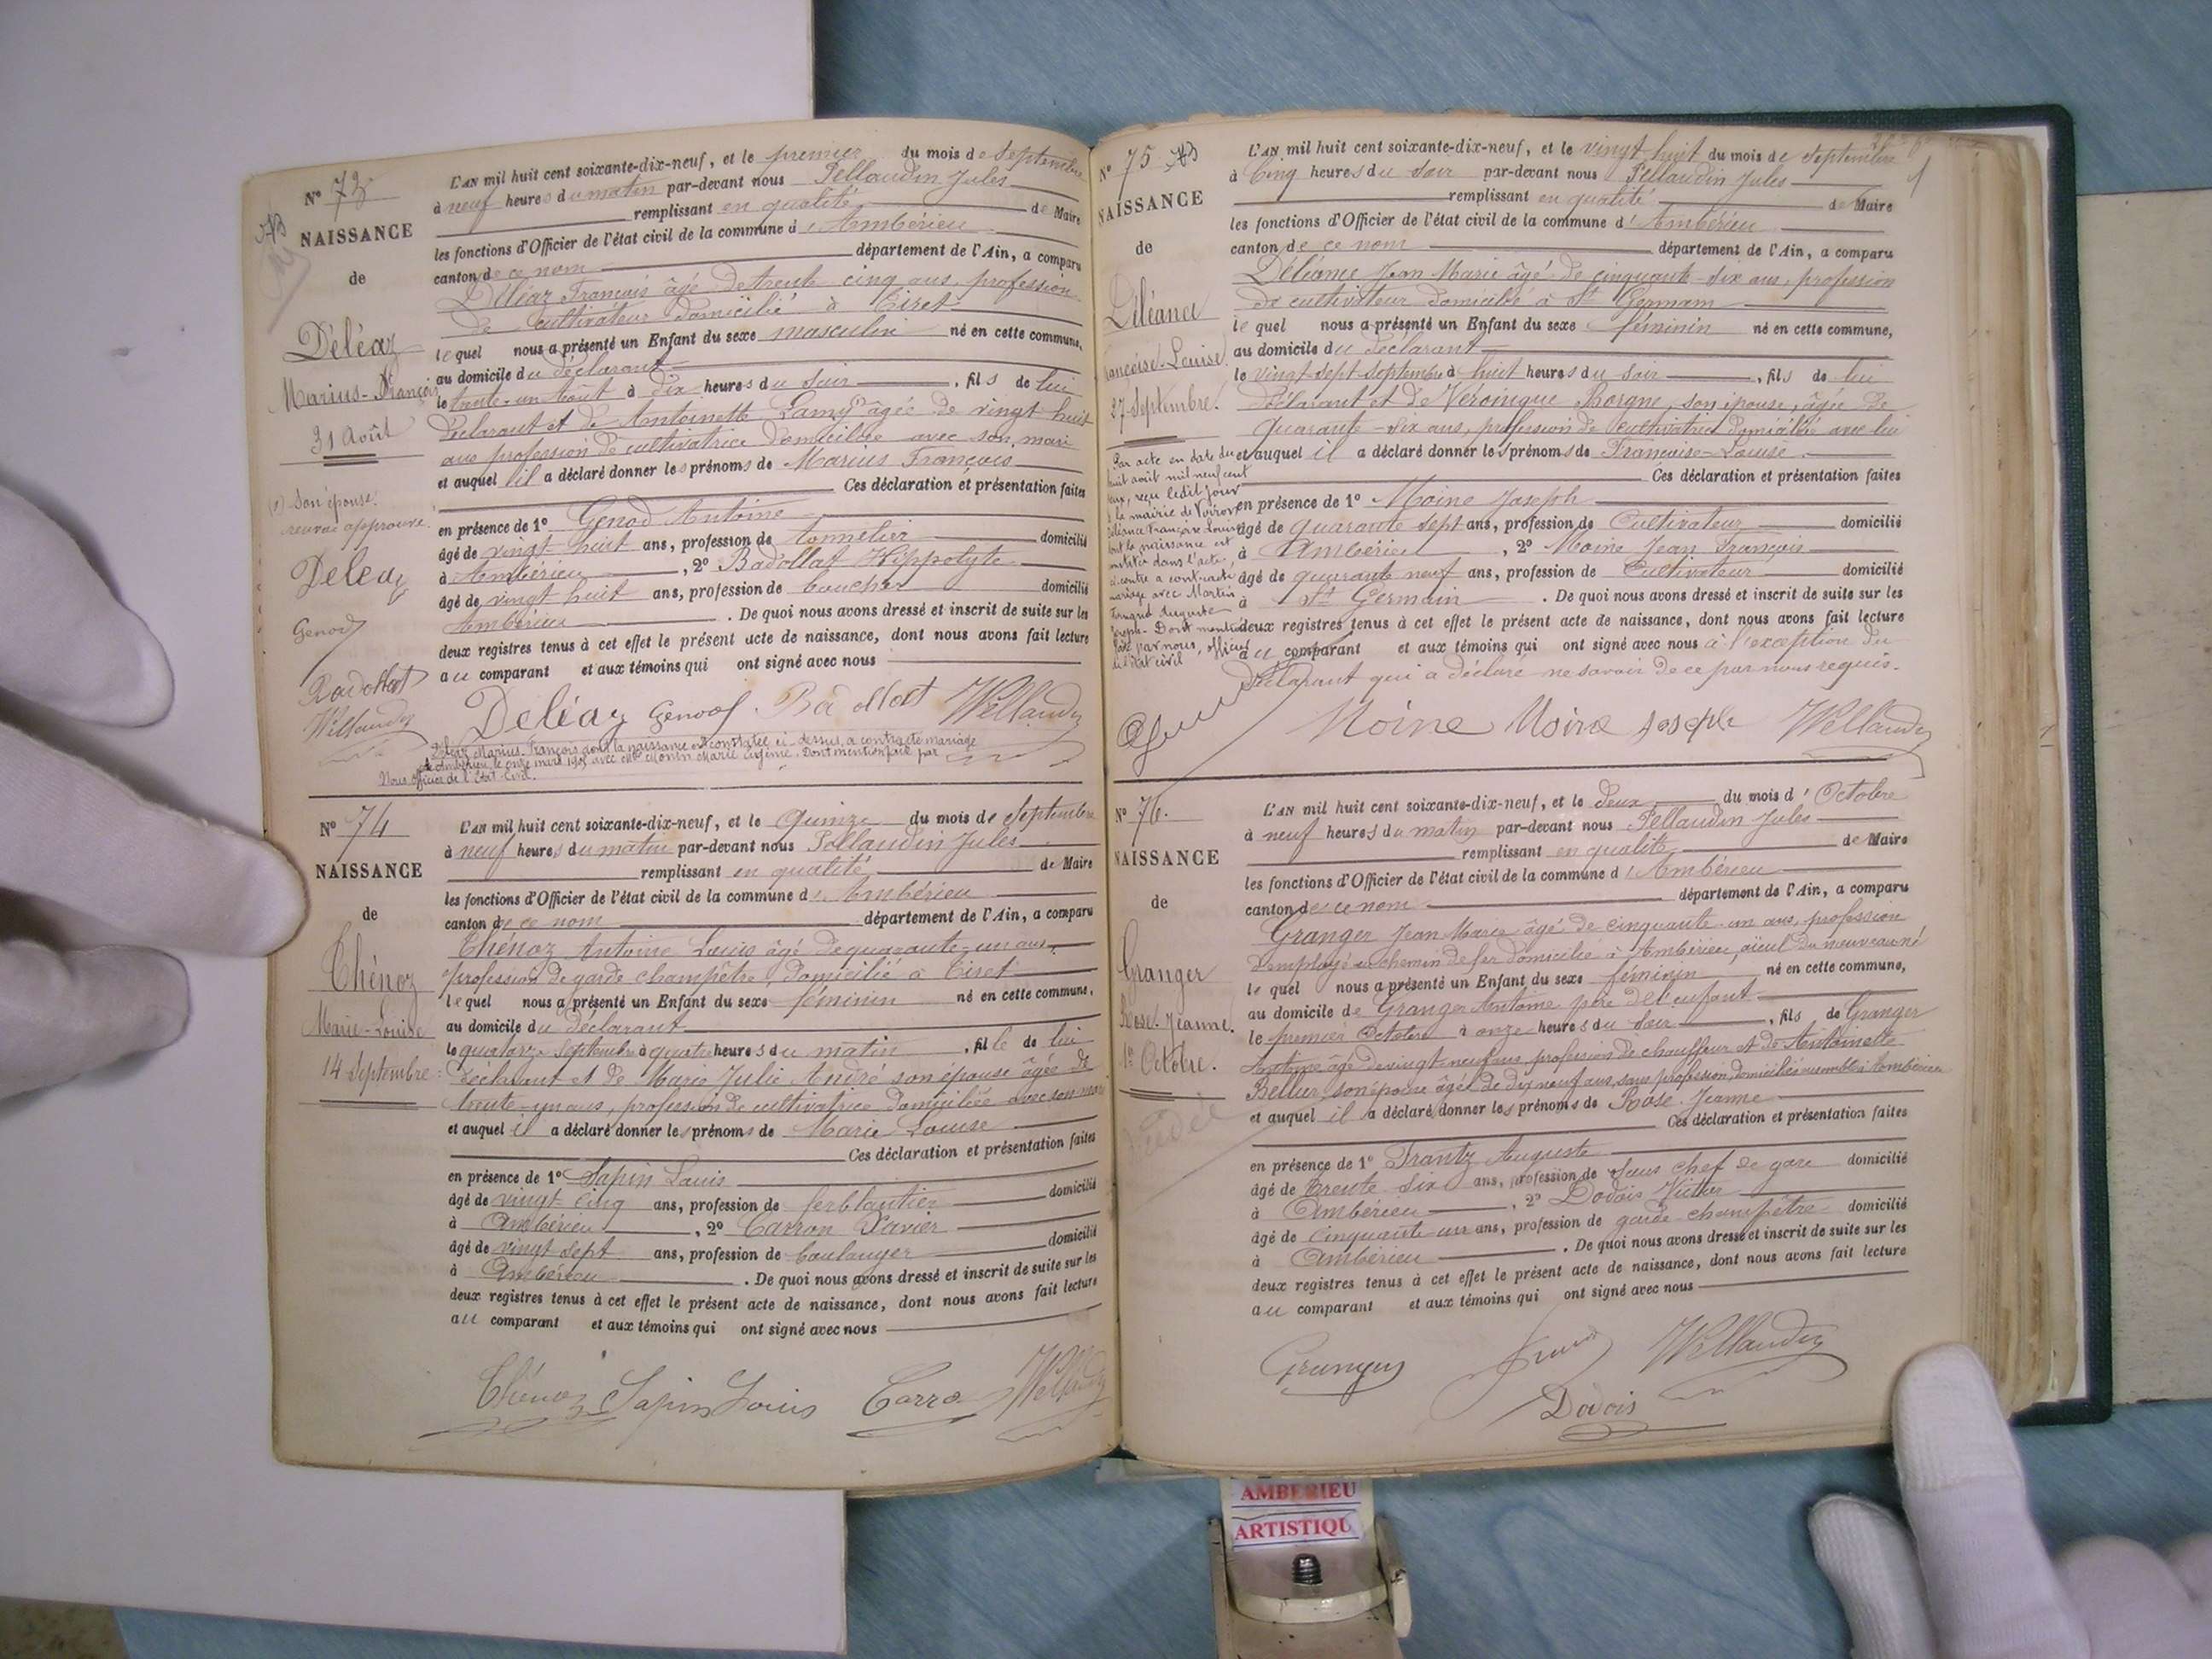 N° 73
NAISSANCE
de
Déléaz
Marius-François
31 Août
(1) Son épouse.
renvoi approuvé.
Deleaz
Genod
Badollat
L'AN mil huit cent soixante-dix-neuf, et le premier du mois de Septembre
à neuf heures du matin par-devant nous Pellaudin Jules
remplissant en qualité de Maire
les fonctions d'Officier de l'état civil de la commune d'Ambérieu
canton de ce nom département de l'Ain, a comparu
Déléaz François âgé de trente cinq ans, profession
de cultivateur domicilié à Tiret
lequel nous a présenté un Enfant du sexe masculin né en cette commune,
au domicile du déclarant
le trente-un Août à dix heures du soir , fils de lui
déclarant et de Antoinette Lamy (1) âgée de vingt huit
ans profession de cultivatrice domiciliée avec son mari
et auquel il a déclaré donner les prénoms de Marius François
Ces déclaration et présentation faites
en présence de 1° Genod Antoine
âgé de vingt-huit ans, profession de tonnelier domicilié
à Ambérieu , 2° Badollat Hippolyte
âgé de vingt huit ans, profession de boucher domicilié
Ambérieu . De quoi nous avons dressé et inscrit de suite sur les
deux registres tenus à cet effet le présent acte de naissance, dont nous avons fait lecture
au comparant et aux témoins qui ont signé avec nous
Deléaz Genod Badollat
Déléaz Marius-François dont la naissance est constatée ci-dessus, a contracté mariage
à Ambérieu, le onze mars avec Marie Eugénie. Dont mention faite par
Nous Officier de l'Etat-Civil.
N° 74
NAISSANCE
de
Thénoz
Marie-Louise
14 Septembre
L'AN mil huit cent soixante-dix-neuf, et le Quinze du mois de Septembre
à neuf heures du matin par-devant nous Pellaudin Jules
remplissant en qualité de Maire
les fonctions d'Officier de l'état civil de la commune d'Ambérieu
canton de ce nom département de l'Ain, a comparu
Thénoz Antoine Louis âgé de quarante-un ans
profession de garde champêtre, domicilié à Tiret
lequel nous a présenté un Enfant du sexe féminin né en cette commune,
au domicile du déclarant
le quatorze Septembre à quatre heures du matin , fille de lui
déclarant et de Marie Julie André son épouse âgée de
trente-un ans, profession de cultivatrice domiciliée avec son mari
et auquel il a déclaré donner les prénoms de Marie Louise
Ces déclaration et présentation faites
en présence de 1° Sapin Louis
âgé de vingt-cinq ans, profession de ferblantier domicilié
à Ambérieu , 2° Carron Xavier
âgé de vingt sept ans, profession de boulanger domicilié
à Ambérieu . De quoi nous avons dressé et inscrit de suite sur les
deux registres tenus à cet effet le présent acte de naissance, dont nous avons fait lecture
au comparant et aux témoins qui ont signé avec nous
Thénoz Sapin Louis Carro
N° 75
NAISSANCE
de
Déléance
Françoise-Louise
27 Septembre.
Par acte en date du
huit août mil neuf cent
reçu ledit jour
à la mairie de Voiron
Déléance Françoise Louise
dont la naissance est
constatée dans l'acte
ci-contre a contracté
mariage avec Martin
Auguste
Joseph. Dont mention
faite par nous, officier
de l'état civil
L'AN mil huit cent soixante-dix-neuf, et le vingt-huit du mois de septembre
à Cinq heures du soir par-devant nous Pellaudin Jules
remplissant en qualité de Maire
les fonctions d'Officier de l'état civil de la commune d'Ambérieu
canton de ce nom département de l'Ain, a comparu
Déléance Jean Marie âgé de cinquante-six ans, profession
de cultivateur domicilié à St Germain
lequel nous a présenté un Enfant du sexe féminin né en cette commune,
au domicile du déclarant
le vingt-sept septembre à huit heures du soir , fils de lui
déclarant et de Véronique Borgne, son épouse, âgée de
quarante-six ans, profession de cultivatrice domiciliée avec lui
et auquel il a déclaré donner les prénoms de Françoise-Louise
Ces déclaration et présentation faites
en présence de 1° Moine Joseph
âgé de quarante sept ans, profession de Cultivateur domicilié
à Ambérieu , 2° Moine Jean François
âgé de quarante neuf ans, profession de Cultivateur domicilié
à St Germain . De quoi nous avons dressé et inscrit de suite sur les
deux registres tenus à cet effet le présent acte de naissance, dont nous avons fait lecture
au comparant et aux témoins qui ont signé avec nous à l'exception du
déclarant qui a déclaré ne savoir de ce par nous requis.
Moine Moine Joseph
N° 76.
NAISSANCE
de
Granger
Rose-Jeanne.
1er Octobre.
L'AN mil huit cent soixante-dix-neuf, et le deux du mois d'Octobre
à neuf heures du matin par-devant nous Pellaudin Jules
remplissant en qualité de Maire
les fonctions d'Officier de l'état civil de la commune d'Ambérieu
canton de ce nom département de l'Ain, a comparu
Granger Jean Marie âgé de cinquante-un ans, profession
d'employé au chemin de fer domicilié à Ambérieu, aïeul du nouveau né
lequel nous a présenté un Enfant du sexe féminin né en cette commune,
au domicile de Granger Antoine père de l'enfant
le premier Octobre à onze heures du soir , fils de Granger
Antoine âgé de vingt-neuf ans profession de chauffeur et de Antoinette
Bellur, son épouse âgée de dix neuf ans, sans profession, domiciliés ensemble à Ambérieu
et auquel il a déclaré donner les prénoms de Rose Jeanne
Ces déclaration et présentation faites
en présence de 1° Frantz Auguste
âgé de trente six ans, profession de Sous chef de gare domicilié
à Ambérieu , 2° Dodois Victor
âgé de cinquante un ans, profession de garde-champêtre domicilié
à Ambérieu . De quoi nous avons dressé et inscrit de suite sur les
deux registres tenus à cet effet le présent acte de naissance, dont nous avons fait lecture
au comparant et aux témoins qui ont signé avec nous
Granger
Dodois
AMBERIEU
ARTISTIQU